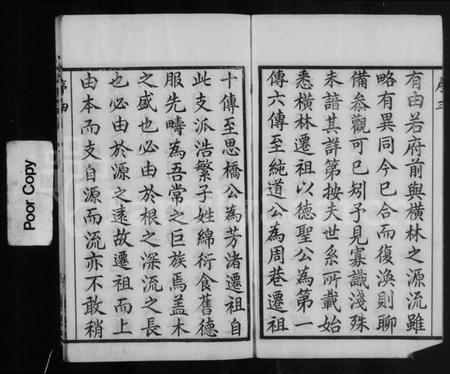 序三
有由若府前與橫林之源流雖
略有異同今已合而復渙則聊
備叅觀可已矧予見寡識淺殊
未諳其詳第按夫世系所載始
悉橫林遷祖以德聖公為第一
傳六傳至純道公為周巷遷祖
十傳至思橋公為芳渚遷祖自
此支派浩繁子姓綿衍食舊德
服先疇為吾常之巨族焉蓋木
之盛也必由於根之深流之長
也必由於源之遠故遷祖而上
由本而支自源而流亦不敢稍
序四
Poor Copy